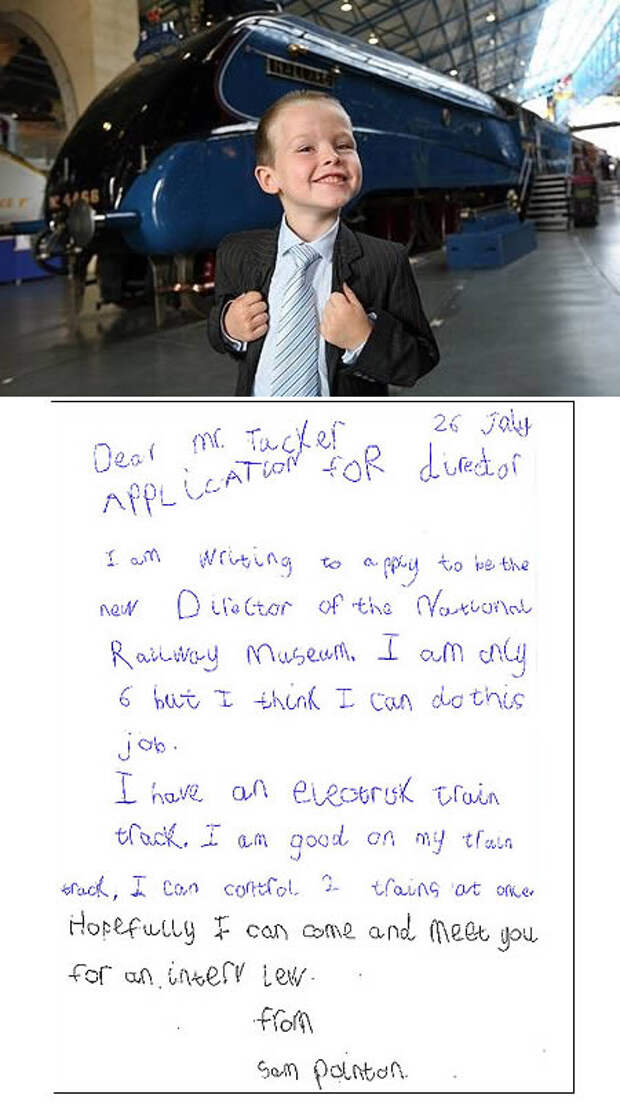 MALLARD
4468
Dear Mr. Tucker 26 July
APPLiCATION FOR director
I am writing to apply to be the
new Director of the National
Railway Museum. I am only
6 but I think I can do this
job.
I have an electruk train
track. I am good on my train
track, I can control 2 trains at once.
Hopefully I can come and meet you
for an interview.
from
Sam Pointon.